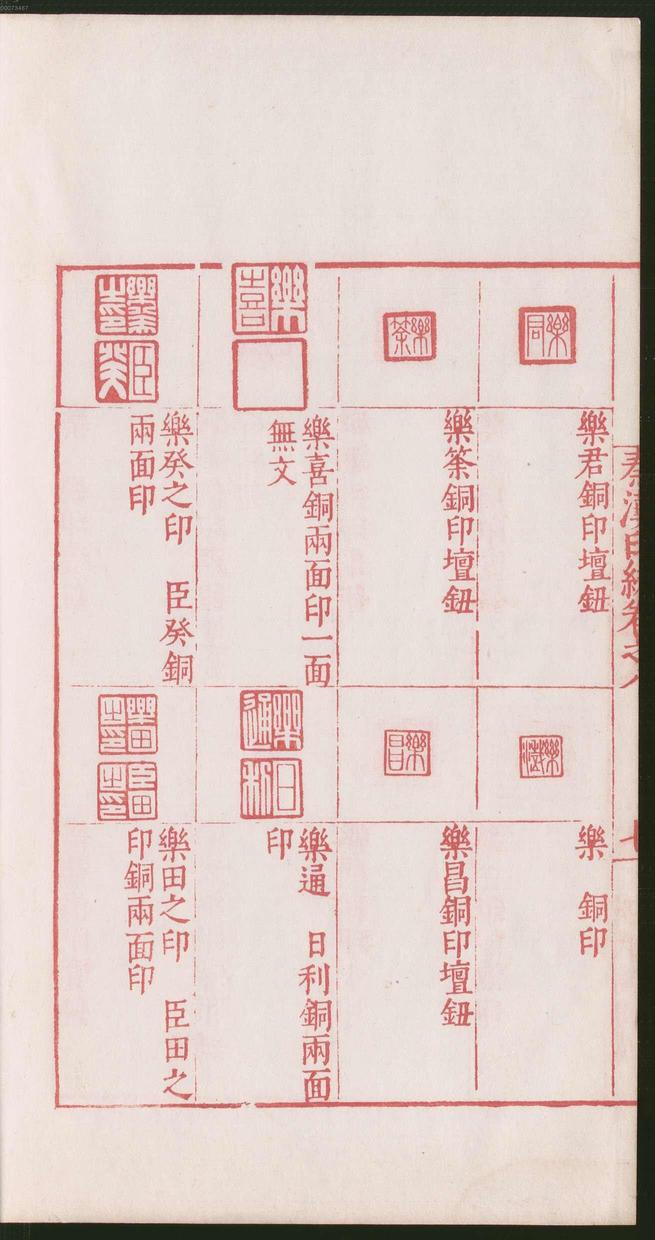 00073467
秦漢印統卷之八
七
樂君銅印壇鈕
樂䇲銅印壇鈕
樂喜銅兩面印一面
無文
樂癸之印 臣癸銅
兩面印
樂 銅印
樂昌銅印壇鈕
樂通 日利銅兩面
印
樂田之印 臣田之
印銅兩面印